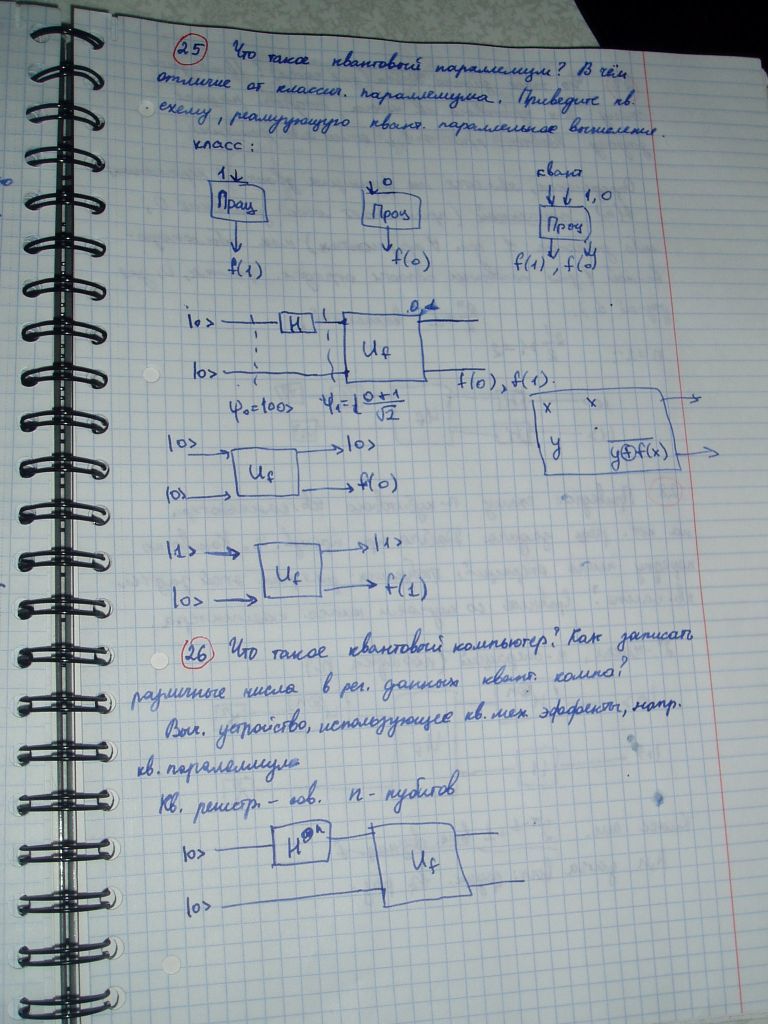 25 Что такое квантовый параллелизм? В чём
отличие от классич. параллелизма. Приведите кв.
схему, реализующую квант. параллельное вычисление.
класс:
1 0 кванта
1, 0
Проц Проц Проц
f(1) f(0) f(1), f(0)
|0> H 0, 1
U_f
|0> f(0), f(1).
φ₀=|00> φ₁=|0+1/√2
x x
y y⊕f(x)
|0> |0>
U_f
|0> f(0)
|1> |1>
U_f
|0> f(1)
26 Что такое квантовый компьютер? Как записать
различные числа в рег. данных квант. компа?
Выч. устройство, использующее кв. мех. эффекты, напр.
кв. параллелизма
Кв. регистр - сов. n - кубитов
|0> H^⊗n
U_f
|0>